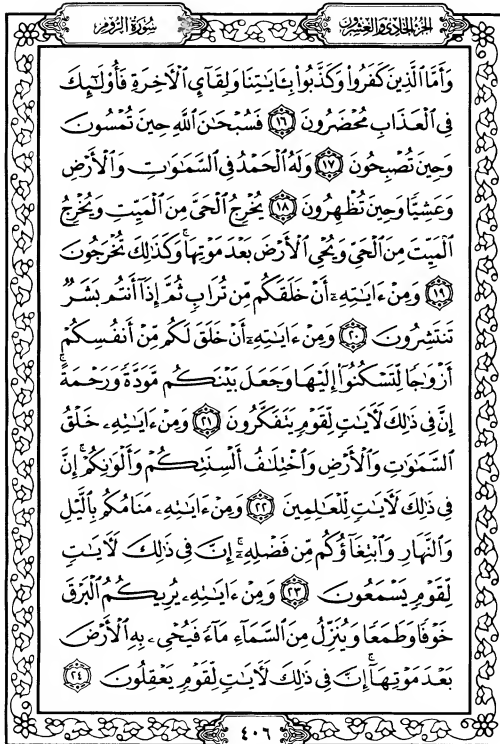 سُورَةُ الرُّومِ
الجُزْءُ الحَادِي وَالعِشْرُونَ
وَأَمَّا ٱلَّذِينَ كَفَرُواْ وَكَذَّبُواْ بِـَٔايَٰتِنَا وَلِقَآيِٕ ٱلْأٓخِرَةِ فَأُوْلَٰٓئِكَ
فِى ٱلْعَذَابِ مُحْضَرُونَ ١٦ فَسُبْحَٰنَ ٱللَّهِ حِينَ تُمْسُونَ
وَحِينَ تُصْبِحُونَ ١٧ وَلَهُ ٱلْحَمْدُ فِى ٱلسَّمَٰوَٰتِ وَٱلْأَرْضِ
وَعَشِيًّا وَحِينَ تُظْهِرُونَ ١٨ يُخْرِجُ ٱلْحَىَّ مِنَ ٱلْمَيِّتِ وَيُخْرِجُ
ٱلْمَيِّتَ مِنَ ٱلْحَىِّ وَيُحْىِ ٱلْأَرْضَ بَعْدَ مَوْتِهَا ۚ وَكَذَٰلِكَ تُخْرَجُونَ
١٩ وَمِنْ ءَايَٰتِهِۦٓ أَنْ خَلَقَكُم مِّن تُرَابٍ ثُمَّ إِذَآ أَنتُم بَشَرٌ
تَنتَشِرُونَ ٢٠ وَمِنْ ءَايَٰتِهِۦٓ أَنْ خَلَقَ لَكُم مِّنْ أَنفُسِكُمْ
أَزْوَٰجًا لِّتَسْكُنُوٓاْ إِلَيْهَا وَجَعَلَ بَيْنَكُم مَّوَدَّةً وَرَحْمَةً ۚ
إِنَّ فِى ذَٰلِكَ لَأٓيَٰتٍ لِّقَوْمٍ يَتَفَكَّرُونَ ٢١ وَمِنْ ءَايَٰتِهِۦ خَلْقُ
ٱلسَّمَٰوَٰتِ وَٱلْأَرْضِ وَٱخْتِلَٰفُ أَلْسِنَتِكُمْ وَأَلْوَٰنِكُمْ ۚ إِنَّ
فِى ذَٰلِكَ لَأٓيَٰتٍ لِّلْعَٰلِمِينَ ٢٢ وَمِنْ ءَايَٰتِهِۦ مَنَامُكُم بِٱلَّيْلِ
وَٱلنَّهَارِ وَٱبْتِغَآؤُكُم مِّن فَضْلِهِۦٓ ۚ إِنَّ فِى ذَٰلِكَ لَأٓيَٰتٍ
لِّقَوْمٍ يَسْمَعُونَ ٢٣ وَمِنْ ءَايَٰتِهِۦ يُرِيكُمُ ٱلْبَرْقَ
خَوْفًا وَطَمَعًا وَيُنَزِّلُ مِنَ ٱلسَّمَآءِ مَآءً فَيُحْىِۦ بِهِ ٱلْأَرْضَ
بَعْدَ مَوْتِهَآ ۚ إِنَّ فِى ذَٰلِكَ لَأٓيَٰتٍ لِّقَوْمٍ يَعْقِلُونَ ٢٤
٤٠٦